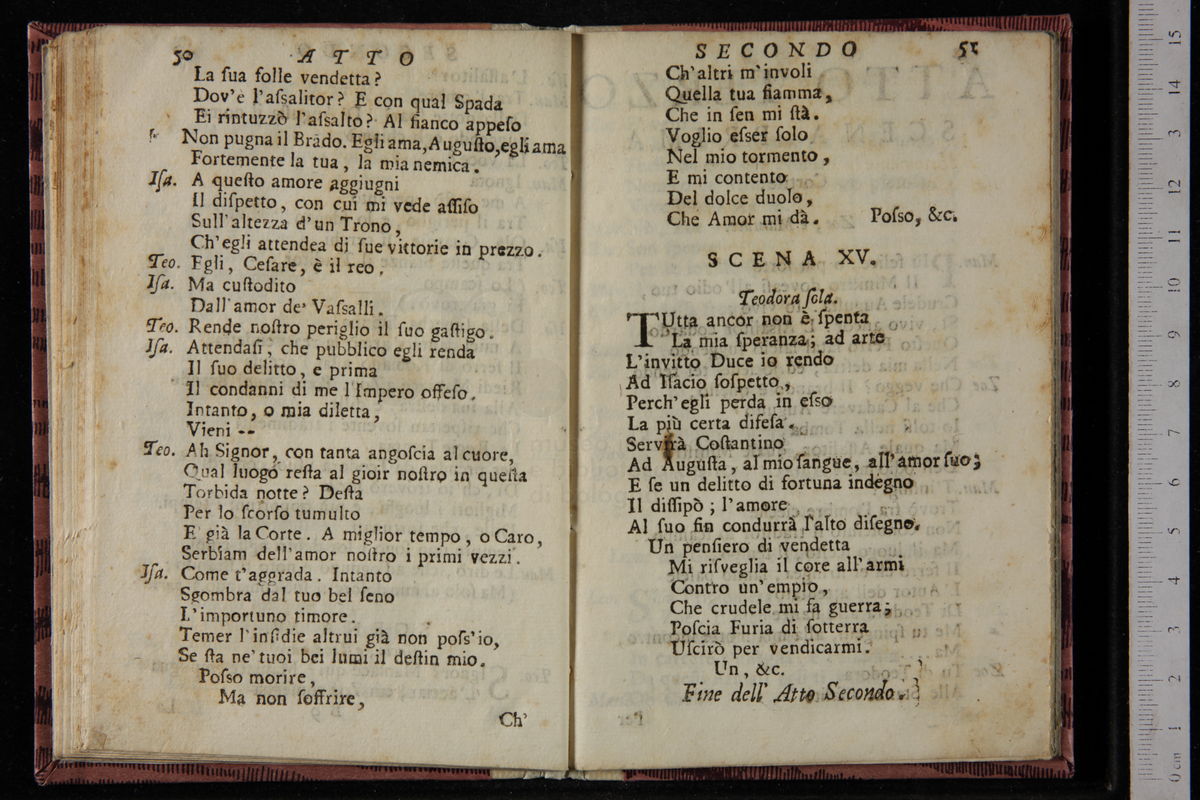 50 ATTO
La ſua folle vendetta?
Dov'è l'aſsalitor? E con qual Spada
Ei rintuzzò l'aſsalto? Al fianco appeſo
Non pugna il Brando. Egli ama, Auguſto, egli ama
Fortemente la tua, la mia nemica.
Iſa. A queſto amore aggiugni
Il diſpetto, con cui mi vede aſſiſo
Sull'altezza d'un Trono,
Ch'egli attendea di ſue vittorie in prezzo.
Teo. Egli, Ceſare, è il reo.
Iſa. Ma cuſtodito
Dall'amor de' Vaſsalli.
Teo. Rende noſtro periglio il ſuo gaſtigo.
Iſa. Attendaſi, che pubblico egli renda
Il ſuo delitto, e prima
Il condanni di me l'Impero offeſo.
Intanto, o mia diletta,
Vieni --
Teo. Ah Signor, con tanta angoſcia al cuore,
Qual luogo reſta al gioir noſtro in queſta
Torbida notte? Deſta
Per lo ſcorſo tumulto
E già la Corte. A miglior tempo, o Caro,
Serbiam dell'amor noſtro i primi vezzi.
Iſa. Come t'aggrada. Intanto
Sgombra dal tuo bel ſeno
L'importuno timore.
Temer l'inſidie altrui già non poſs'io,
Se ſta ne' tuoi bei lumi il deſtin mio.
Poſso morire,
Ma non ſoffrire,
Ch'
SECONDO 51
Ch'altri m'involi
Quella tua fiamma,
Che in ſen mi ſtà.
Voglio eſser ſolo
Nel mio tormento,
E mi contento
Del dolce duolo,
Che Amor mi dà. Poſso, &c.
SCENA XV.
Teodora ſola.
TUtta ancor non è ſpenta
La mia ſperanza; ad arte
L'invitto Duce io rendo
Ad Iſacio ſoſpetto,
Perch'egli perda in eſso
La più certa difeſa.
Servirà Coſtantino
Ad Auguſta, al mio ſangue, all'amor ſuo;
E ſe un delitto di fortuna indegno
Il diſſipò; l'amore
Al ſuo fin condurrà l'alto diſegno.
Un penſiero di vendetta
Mi riſveglia il core all'armi
Contro un'empio,
Che crudele mi fa guerra;
Poſcia Furia di ſotterra
Uſcirò per vendicarmi.
Un, &c.
Fine dell' Atto Secondo.